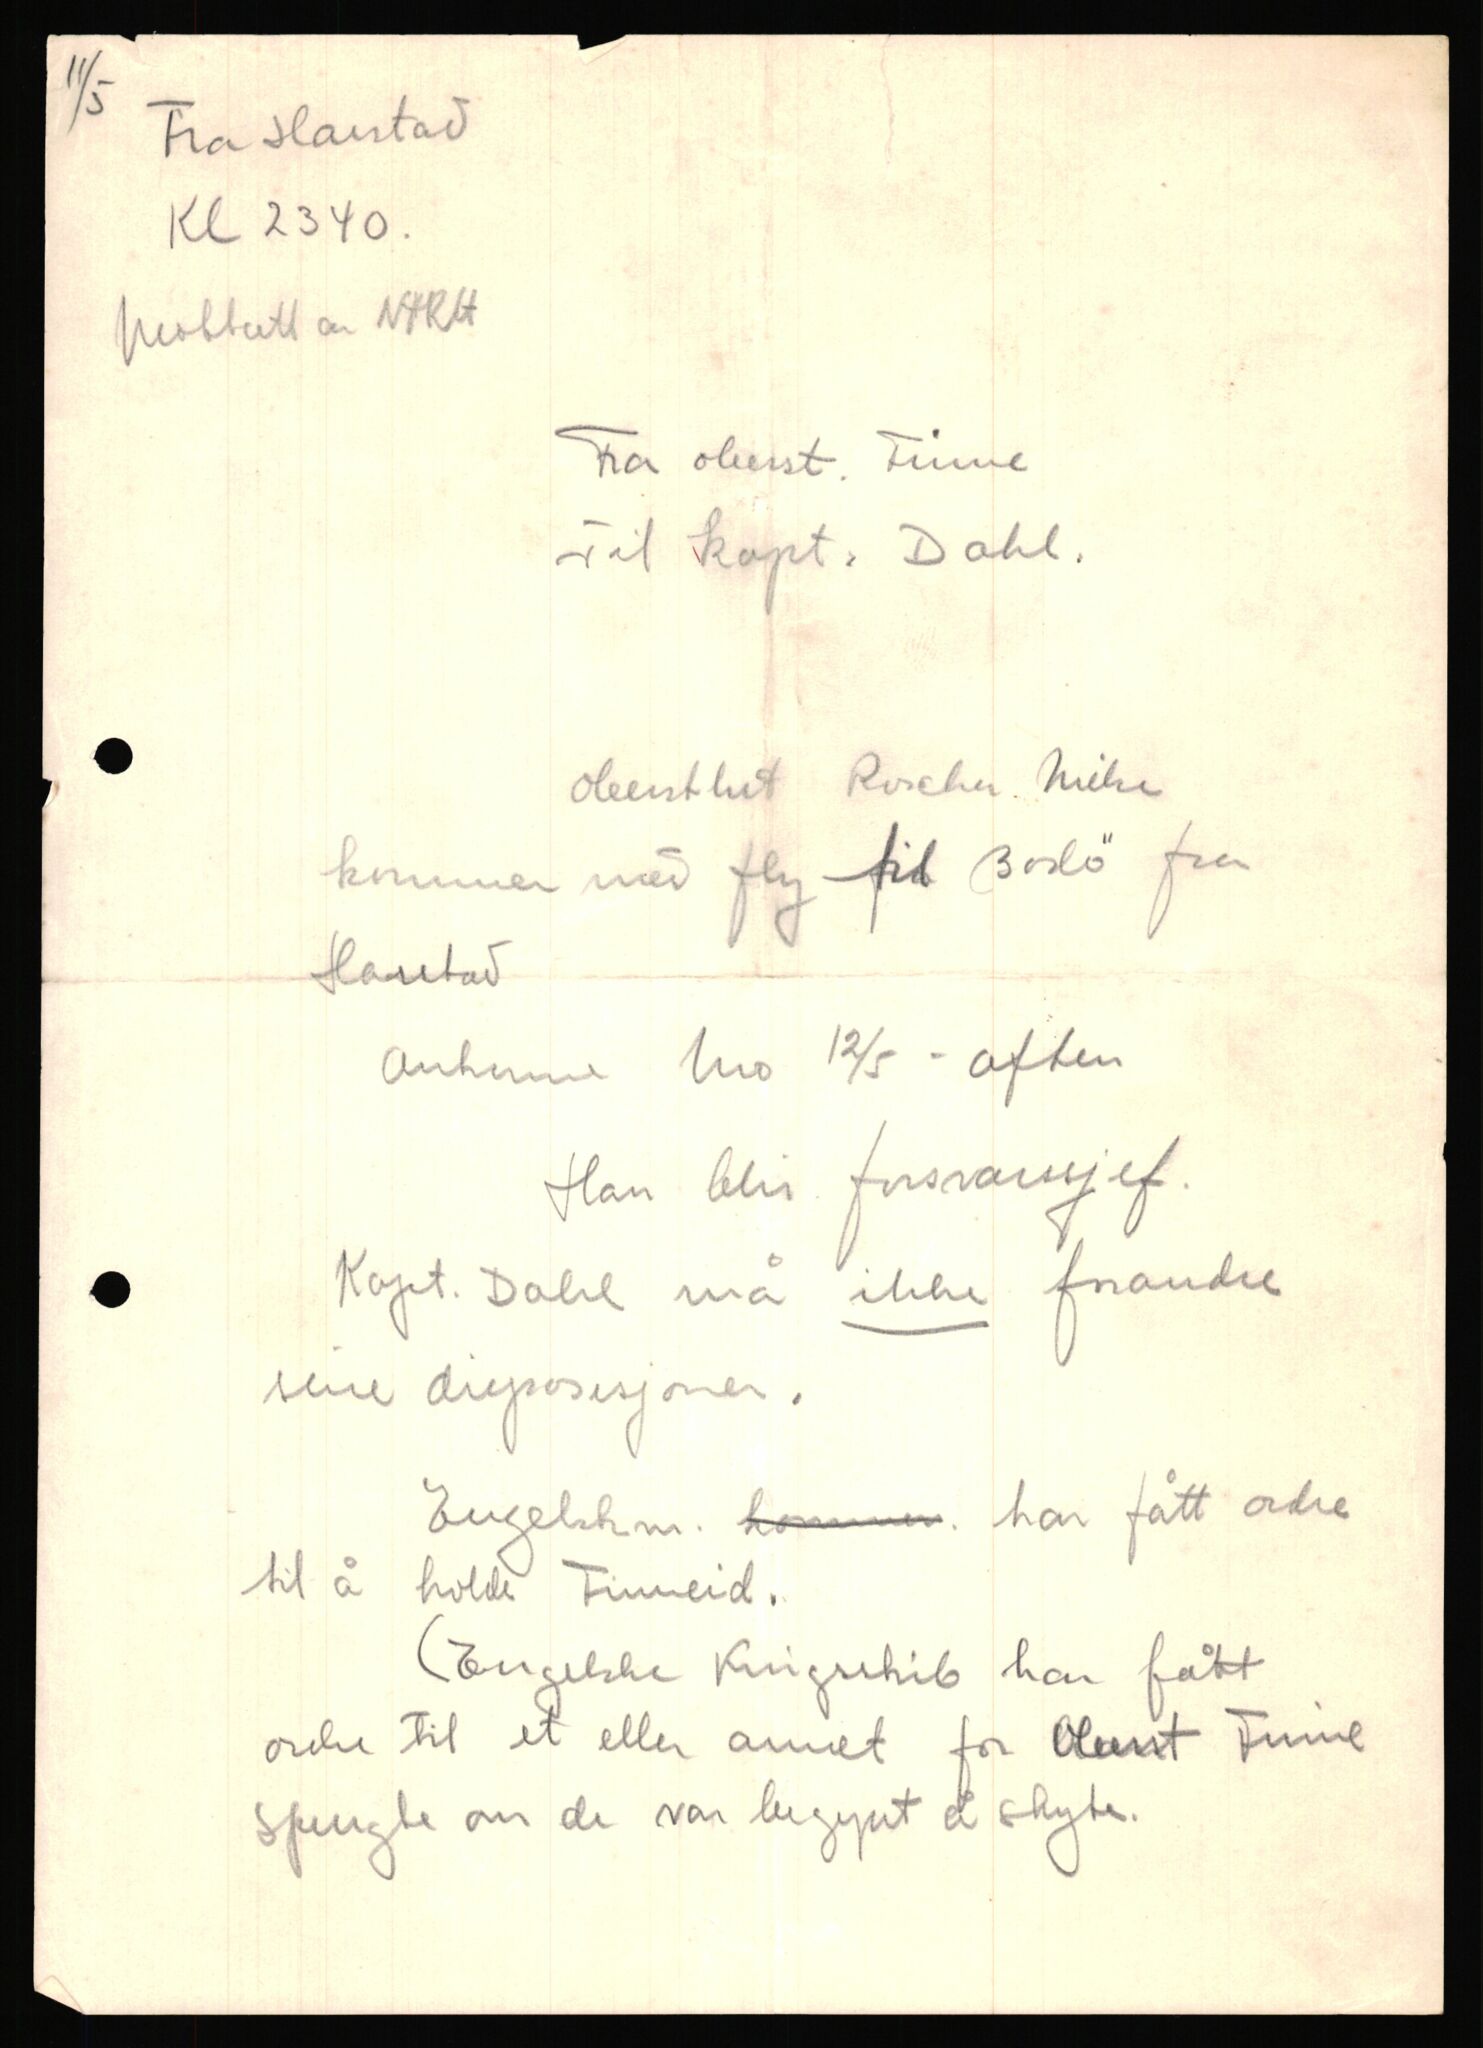 11/5
Fra Harstad
Kl 2340.
Mottatt av
Fra oberst. Finne
Til kapt. Dahl.
Oberstløt Roscher Nielsen
kommer med fly til Bodö fra
Harstad
Ankomme Mo 12/5 - aften
Han blir forsvarssjef.
Kapt. Dahl må ikke forandre
sine disposisjoner.
Engelskm. kommer. har fått ordre
til å holde Finneid.
(Engelske Krigsskib har fått
ordre til et eller annet for Oberst Finne
spurgte om de var begynt å skyte.